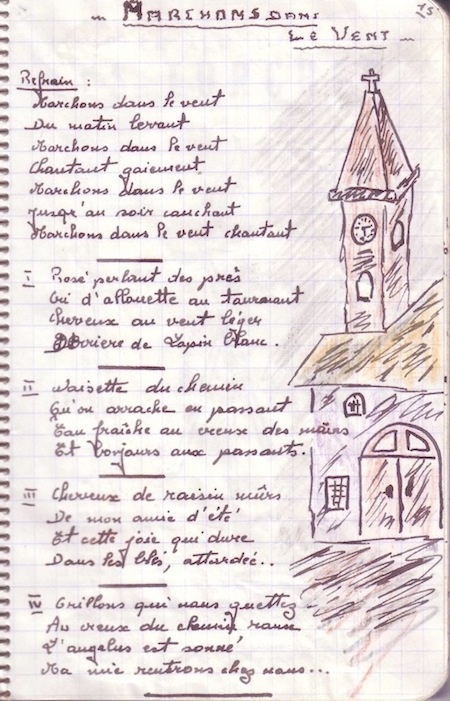 Marchons dans
Le Vent
15
Refrain :
Marchons dans le vent
Du matin levant
Marchons dans le vent
Chantant gaiement
Marchons dans le vent
Jusqu'au soir couchant
Marchons dans le vent chantant
I Rosé perlant des prés
Cri d'allouette au tournant
Cheveux au vent léger
Derrière de Lapin blanc.
II Noisette du chemin
Qu'on arrache en passant
Eau fraîche au creux des mûrs
Et bonjours aux passants.
III Cheveux de raisin mûrs
De mon amie d'été
Et cette joie qui dure
Dans les blés, attardée..
IV Grillons qui nous guettez
Au creux du chemin
L'angelus est sonné
Ma mie rentrons chez nous...